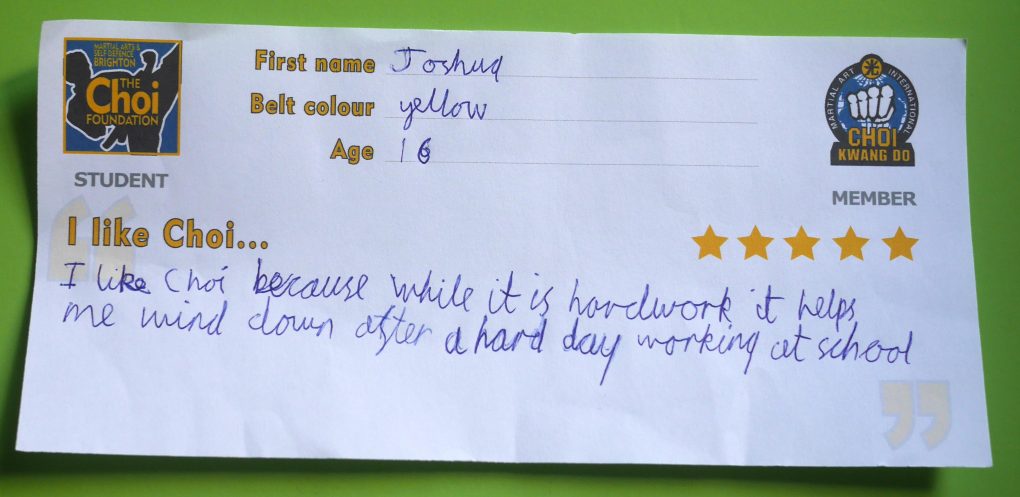 MARTIAL ARTS &
SELF DEFENCE
BRIGHTON
THE
Choi
FOUNDATION
STUDENT
First name Joshua
Belt colour yellow
Age 16
MARTIAL ART INTERNATIONAL
CHOI
KWANG DO
MEMBER
I like Choi...
I like Choi because while it is hardwork it helps
me wind down after a hard day working at school